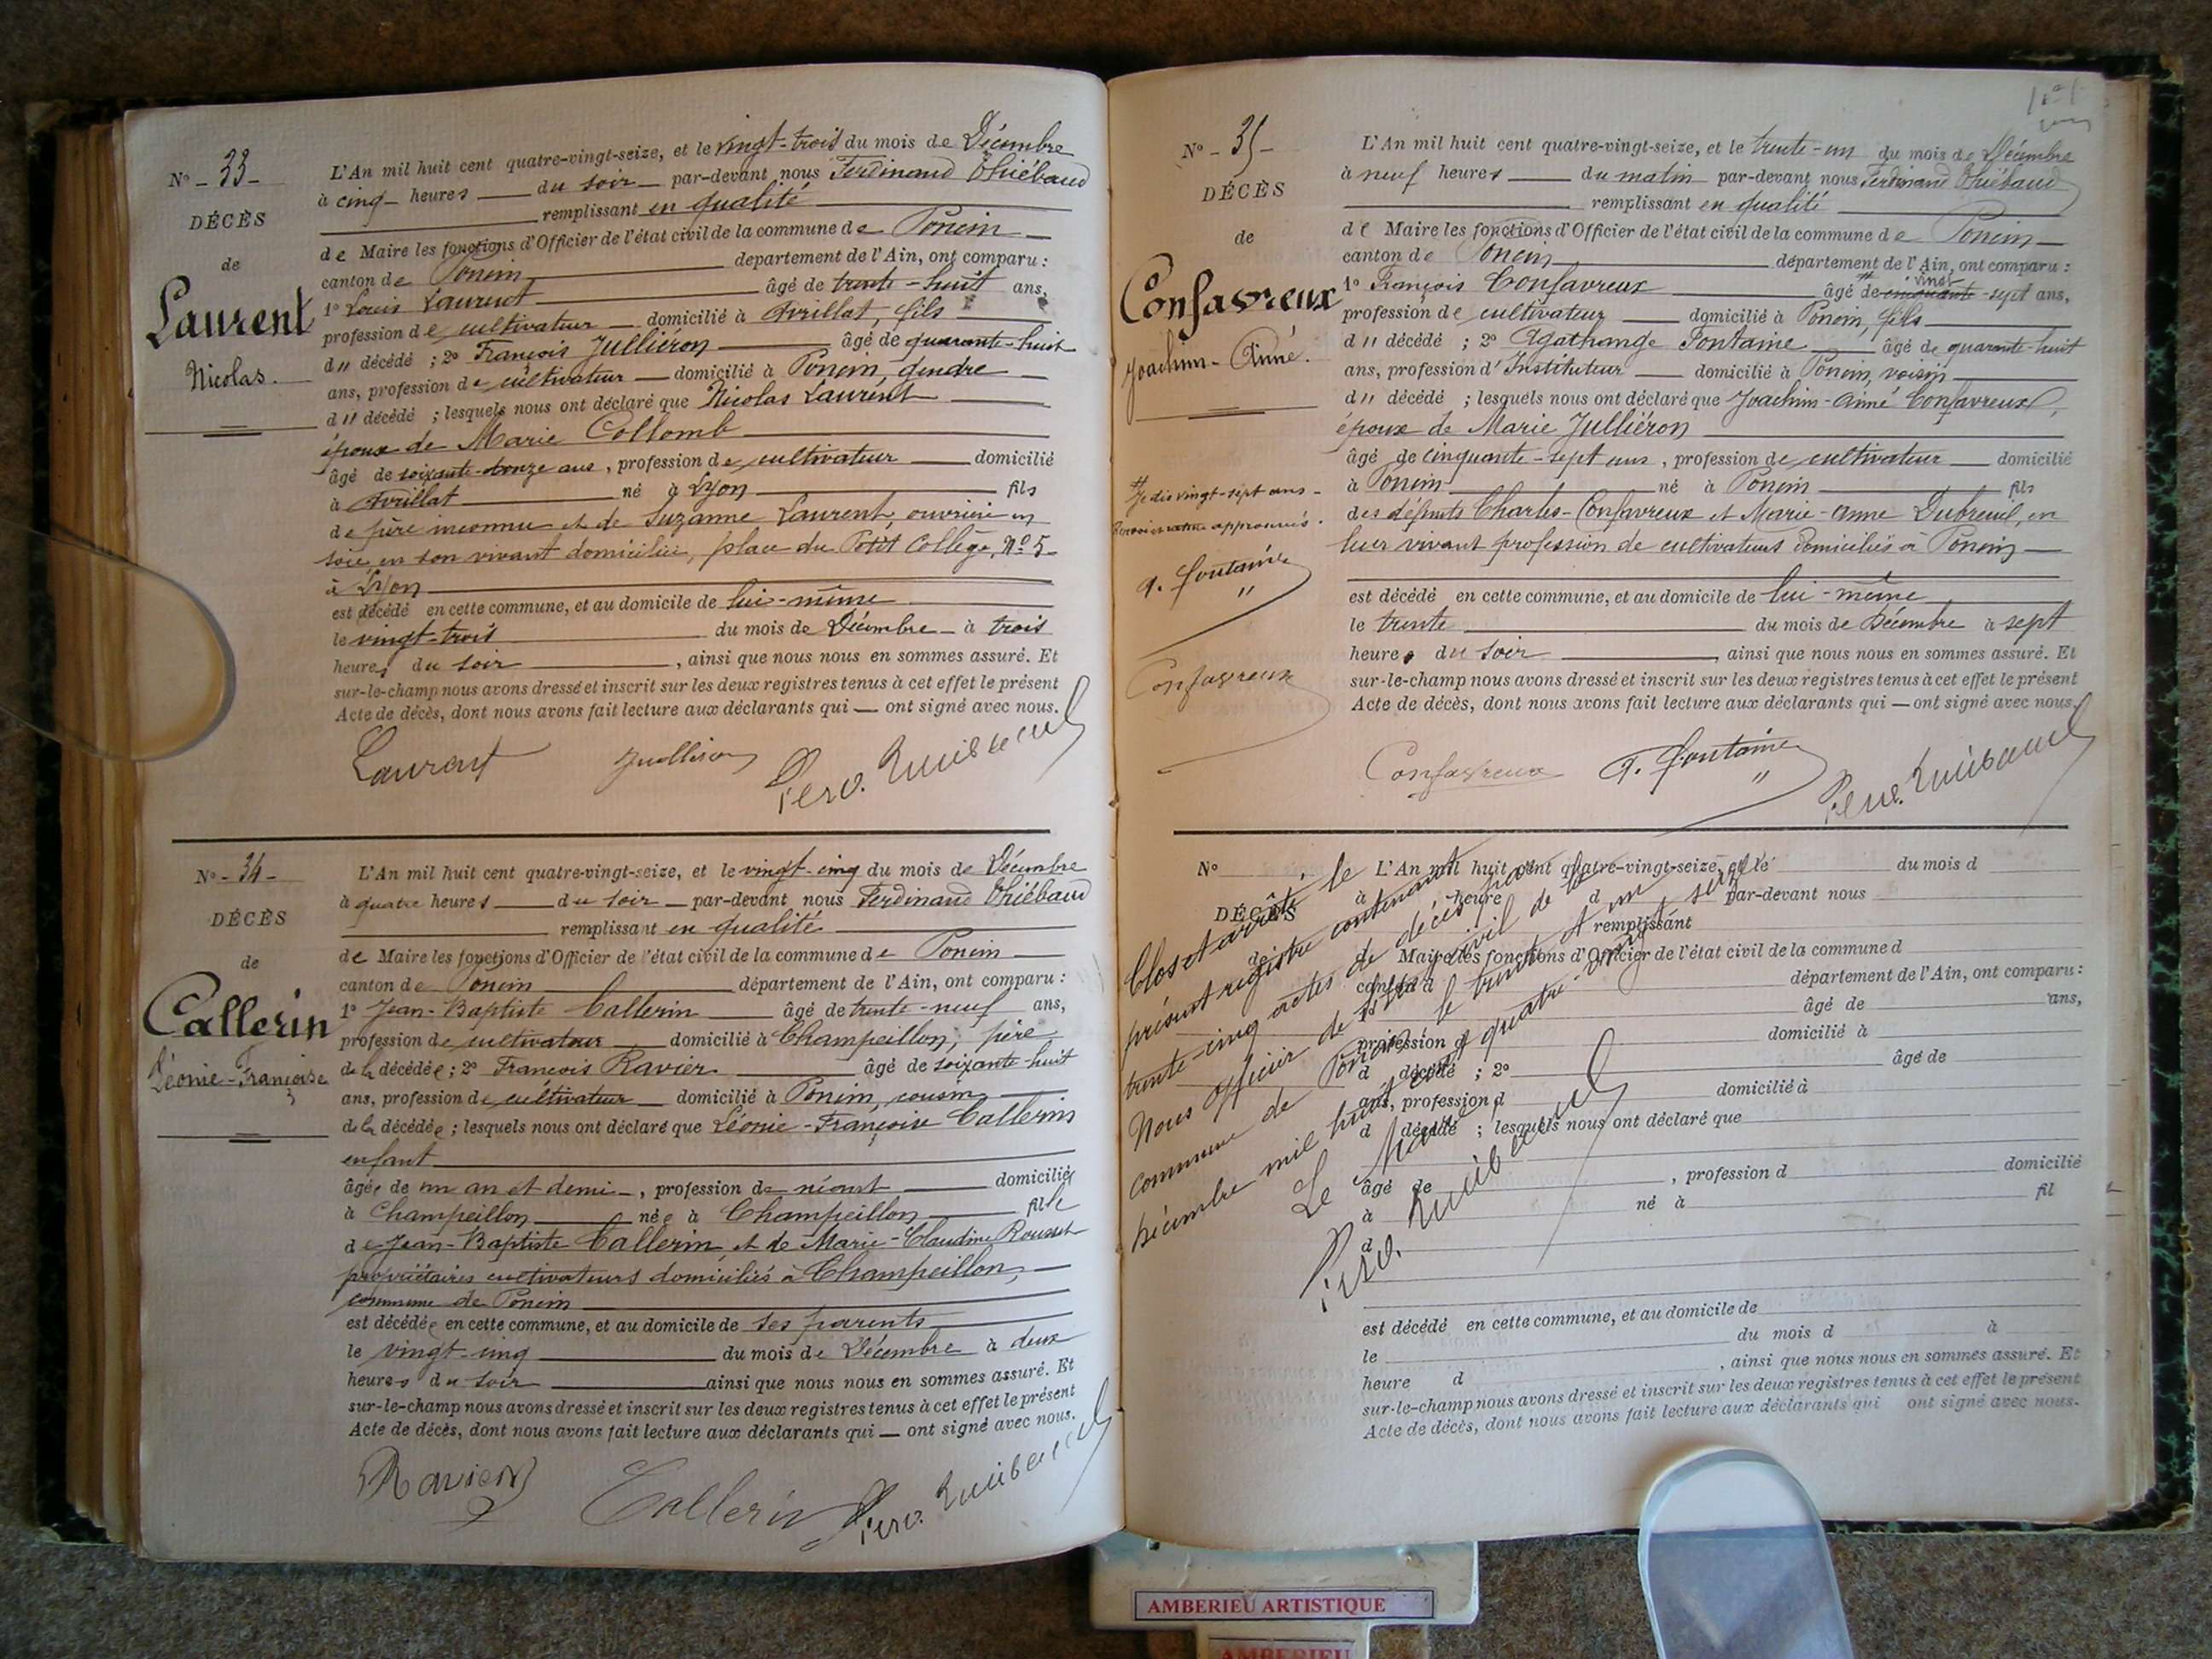 N° - 33 -
DÉCÈS
de
Laurent
Nicolas.
L'An mil huit cent quatre-vingt-seize, et le vingt-trois du mois de Décembre
à cinq heures du soir par-devant nous Ferdinand Thiébaud
remplissant en qualité
de Maire les fonctions d'Officier de l'état civil de la commune de Poncin
canton de Poncin département de l'Ain, ont comparu :
1° Louis Laurent âgé de trente-huit ans,
profession de cultivateur domicilié à Avrillat, fils
du décédé ; 2° François Julliéron âgé de quarante-huit
ans, profession de cultivateur domicilié à Poncin, gendre
du décédé ; lesquels nous ont déclaré que Nicolas Laurent
époux de Marie Collomb
âgé de soixante-onze ans, profession de cultivateur domicilié
à Avrillat né à Lyon fils
de père inconnu et de Suzanne Laurent, ouvrière en
soie, en son vivant domiciliée, place du Petit Collège, N° 5
à Lyon
est décédé en cette commune, et au domicile de lui-même
le vingt-trois du mois de Décembre à trois
heures du soir, ainsi que nous nous en sommes assuré. Et
sur-le-champ nous avons dressé et inscrit sur les deux registres tenus à cet effet le présent
Acte de décès, dont nous avons fait lecture aux déclarants qui — ont signé avec nous.
Laurent Juilliron Ferd. Thiébaud
N° - 34 -
DÉCÈS
de
Callerin
Léonie-Françoise
L'An mil huit cent quatre-vingt-seize, et le vingt-cinq du mois de Décembre
à quatre heures du soir par-devant nous Ferdinand Thiébaud
remplissant en qualité
de Maire les fonctions d'Officier de l'état civil de la commune de Poncin
canton de Poncin département de l'Ain, ont comparu :
1° Jean-Baptiste Callerin âgé de trente-neuf ans,
profession de cultivateur domicilié à Champeillon, père
de la décédée ; 2° François Ravier âgé de soixante-huit
ans, profession de cultivateur domicilié à Poncin, cousin
de la décédée ; lesquels nous ont déclaré que Léonie-Françoise Callerin
enfant
âgée de un an et demi, profession de néant domiciliée
à Champeillon née à Champeillon fille
de Jean-Baptiste Callerin et de Marie-Claudine Rousset
propriétaires cultivateurs domiciliés à Champeillon,
commune de Poncin
est décédée en cette commune, et au domicile de ses parents
le vingt-cinq du mois de Décembre à deux
heures du soir ainsi que nous nous en sommes assuré. Et
sur-le-champ nous avons dressé et inscrit sur les deux registres tenus à cet effet le présent
Acte de décès, dont nous avons fait lecture aux déclarants qui — ont signé avec nous.
Ravier Callerin Ferd. Thiébaud
N° - 35 -
DÉCÈS
de
Confavreux
Joachim-Aimé.
L'An mil huit cent quatre-vingt-seize, et le trente-un du mois de Décembre
à neuf heures du matin par-devant nous Ferdinand Thiébaud
remplissant en qualité
de Maire les fonctions d'Officier de l'état civil de la commune de Poncin
canton de Poncin département de l'Ain, ont comparu :
1° François Confavreux âgé de cinquante vingt-sept ans,
profession de cultivateur domicilié à Poncin, fils
du décédé ; 2° Agathange Fontaine âgé de quarante-huit
ans, profession d'Instituteur domicilié à Poncin, voisin
du décédé ; lesquels nous ont déclaré que Joachim-Aimé Confavreux,
époux de Marie Julliéron
âgé de cinquante-sept ans, profession de cultivateur domicilié
à Poncin né à Poncin fils
des défunts Charles Confavreux et Marie-Anne Dubreuil, en
leur vivant profession de cultivateurs domiciliés à Poncin
est décédé en cette commune, et au domicile de lui-même
le trente du mois de Décembre à sept
heures du soir, ainsi que nous nous en sommes assuré. Et
sur-le-champ nous avons dressé et inscrit sur les deux registres tenus à cet effet le présent
Acte de décès, dont nous avons fait lecture aux déclarants qui — ont signé avec nous.
Je dis vingt-sept ans -
approuvés.
A. Fontaine
Confavreux
Confavreux A. Fontaine Ferd. Thiébaud
N°
DÉCÈS
de
L'An mil huit cent quatre-vingt-seize, et le du mois d
à heure d par-devant nous
remplissant
Maire les fonctions d'Officier de l'état civil de la commune d
canton d département de l'Ain, ont comparu :
âgé de ans,
profession d domicilié à
d décédé ; 2° âgé de
ans, profession d domicilié à
d décédé ; lesquels nous ont déclaré que
âgé de , profession d domicilié
à né à fil
d
est décédé en cette commune, et au domicile de
le du mois d à
heure d , ainsi que nous nous en sommes assuré. Et
sur-le-champ nous avons dressé et inscrit sur les deux registres tenus à cet effet le présent
Acte de décès, dont nous avons fait lecture aux déclarants qui ont signé avec nous.
Clos et arrêté le
présent registre contenant
trente-cinq actes de décès par
Nous Officier de l'état civil de la
commune de Poncin le trente et un
Décembre mil huit cent quatre-vingt seize
Le Maire,
Ferd. Thiébaud
AMBERIEU ARTISTIQUE
AMBERIEU